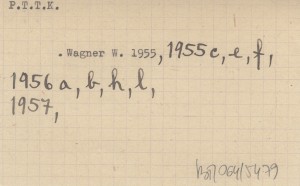 P.T.T.K.
. Wagner W. 1955, 1955 c, e, f,
1956 a, b, h, l,
1957,